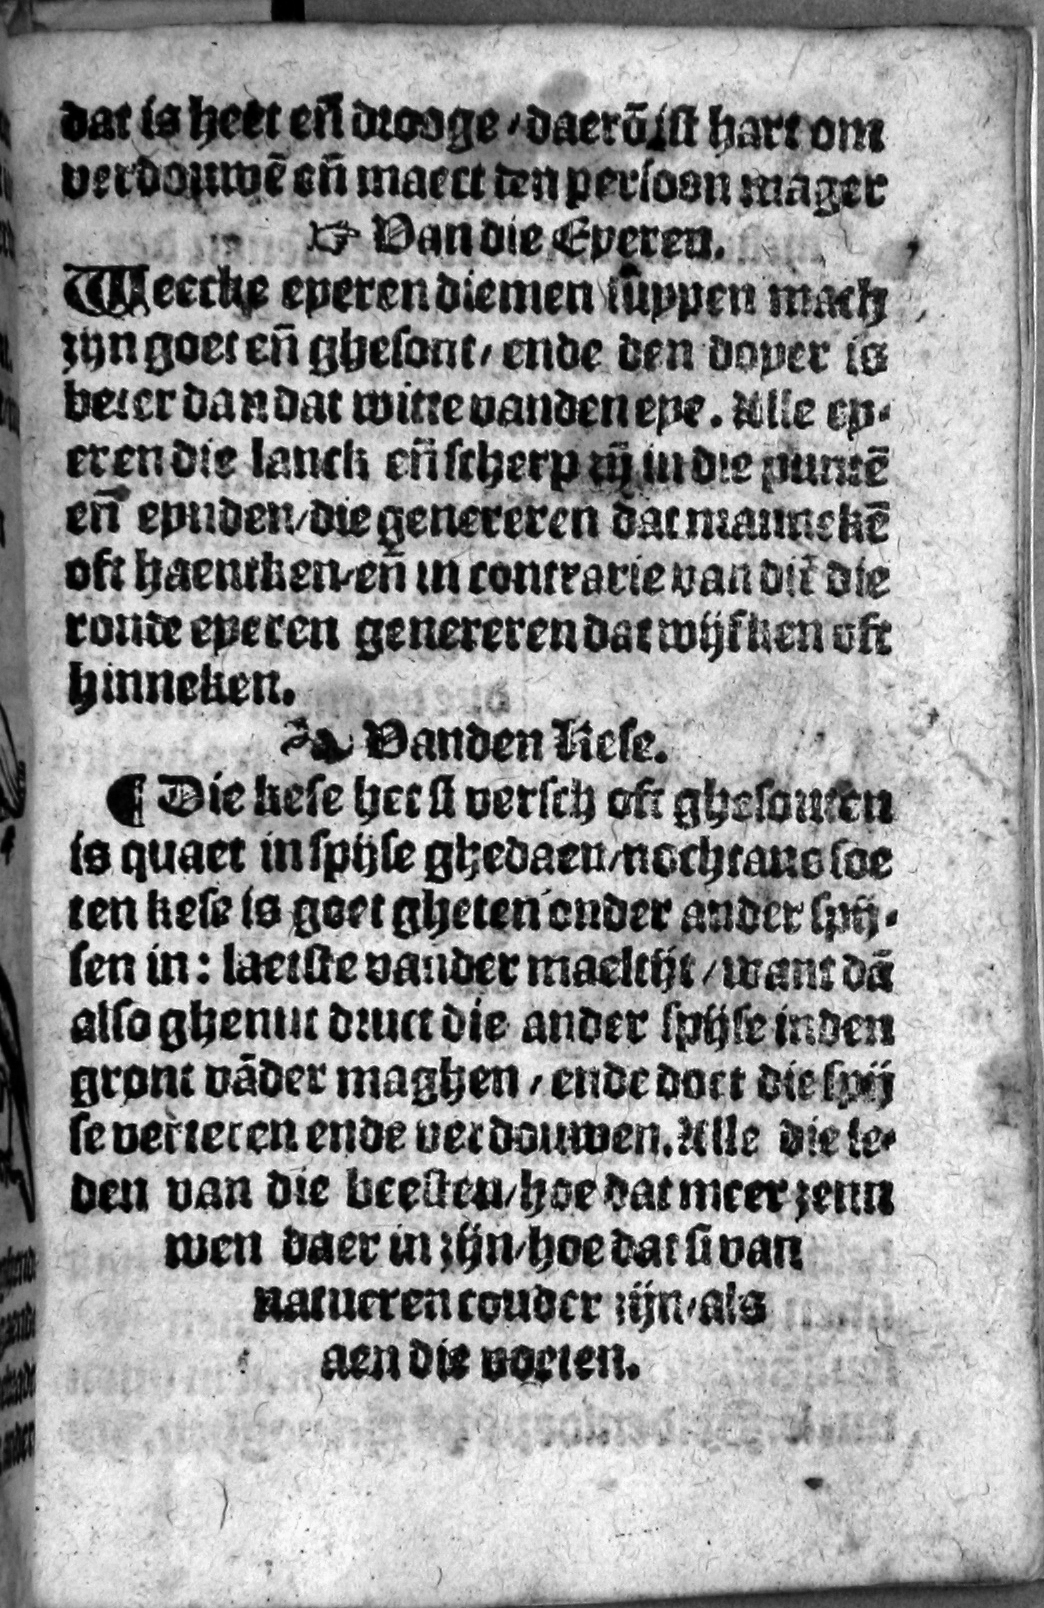 dat is heet eñ drooge / daerõ ist hart om
verdouwẽ eñ maect ten persoon mager
☞ Van die Eyeren.
Weecke eyeren diemen suppen mach
zijn goet eñ ghesont / ende den doyer is
beter dan dat witte vanden eye. Alle ey-
eren die lanck eñ scherp zijn in die puntẽ
eñ eynden / die genereren dat mannekẽ
oft haentken / eñ in contrarie van dit die
ronde eyeren genereren dat wijfken oft
hinneken.
Vanden Kese.
¶ Die kese heet si versch oft ghesouten
is quaet in spijse ghedaen / nochtans soe
ten kese is goet gheten onder ander spij-
sen in: laetste vander maeltijt / want dã
also ghenut druct die ander spijse inden
gront vãder maghen / ende doet die spij
se verteren ende verdouwen. Alle die le-
den van die beesten / hoe dat meer zenu
wen daer in zijn / hoe dat si van
natueren couder zijn / als
aen die voeten.